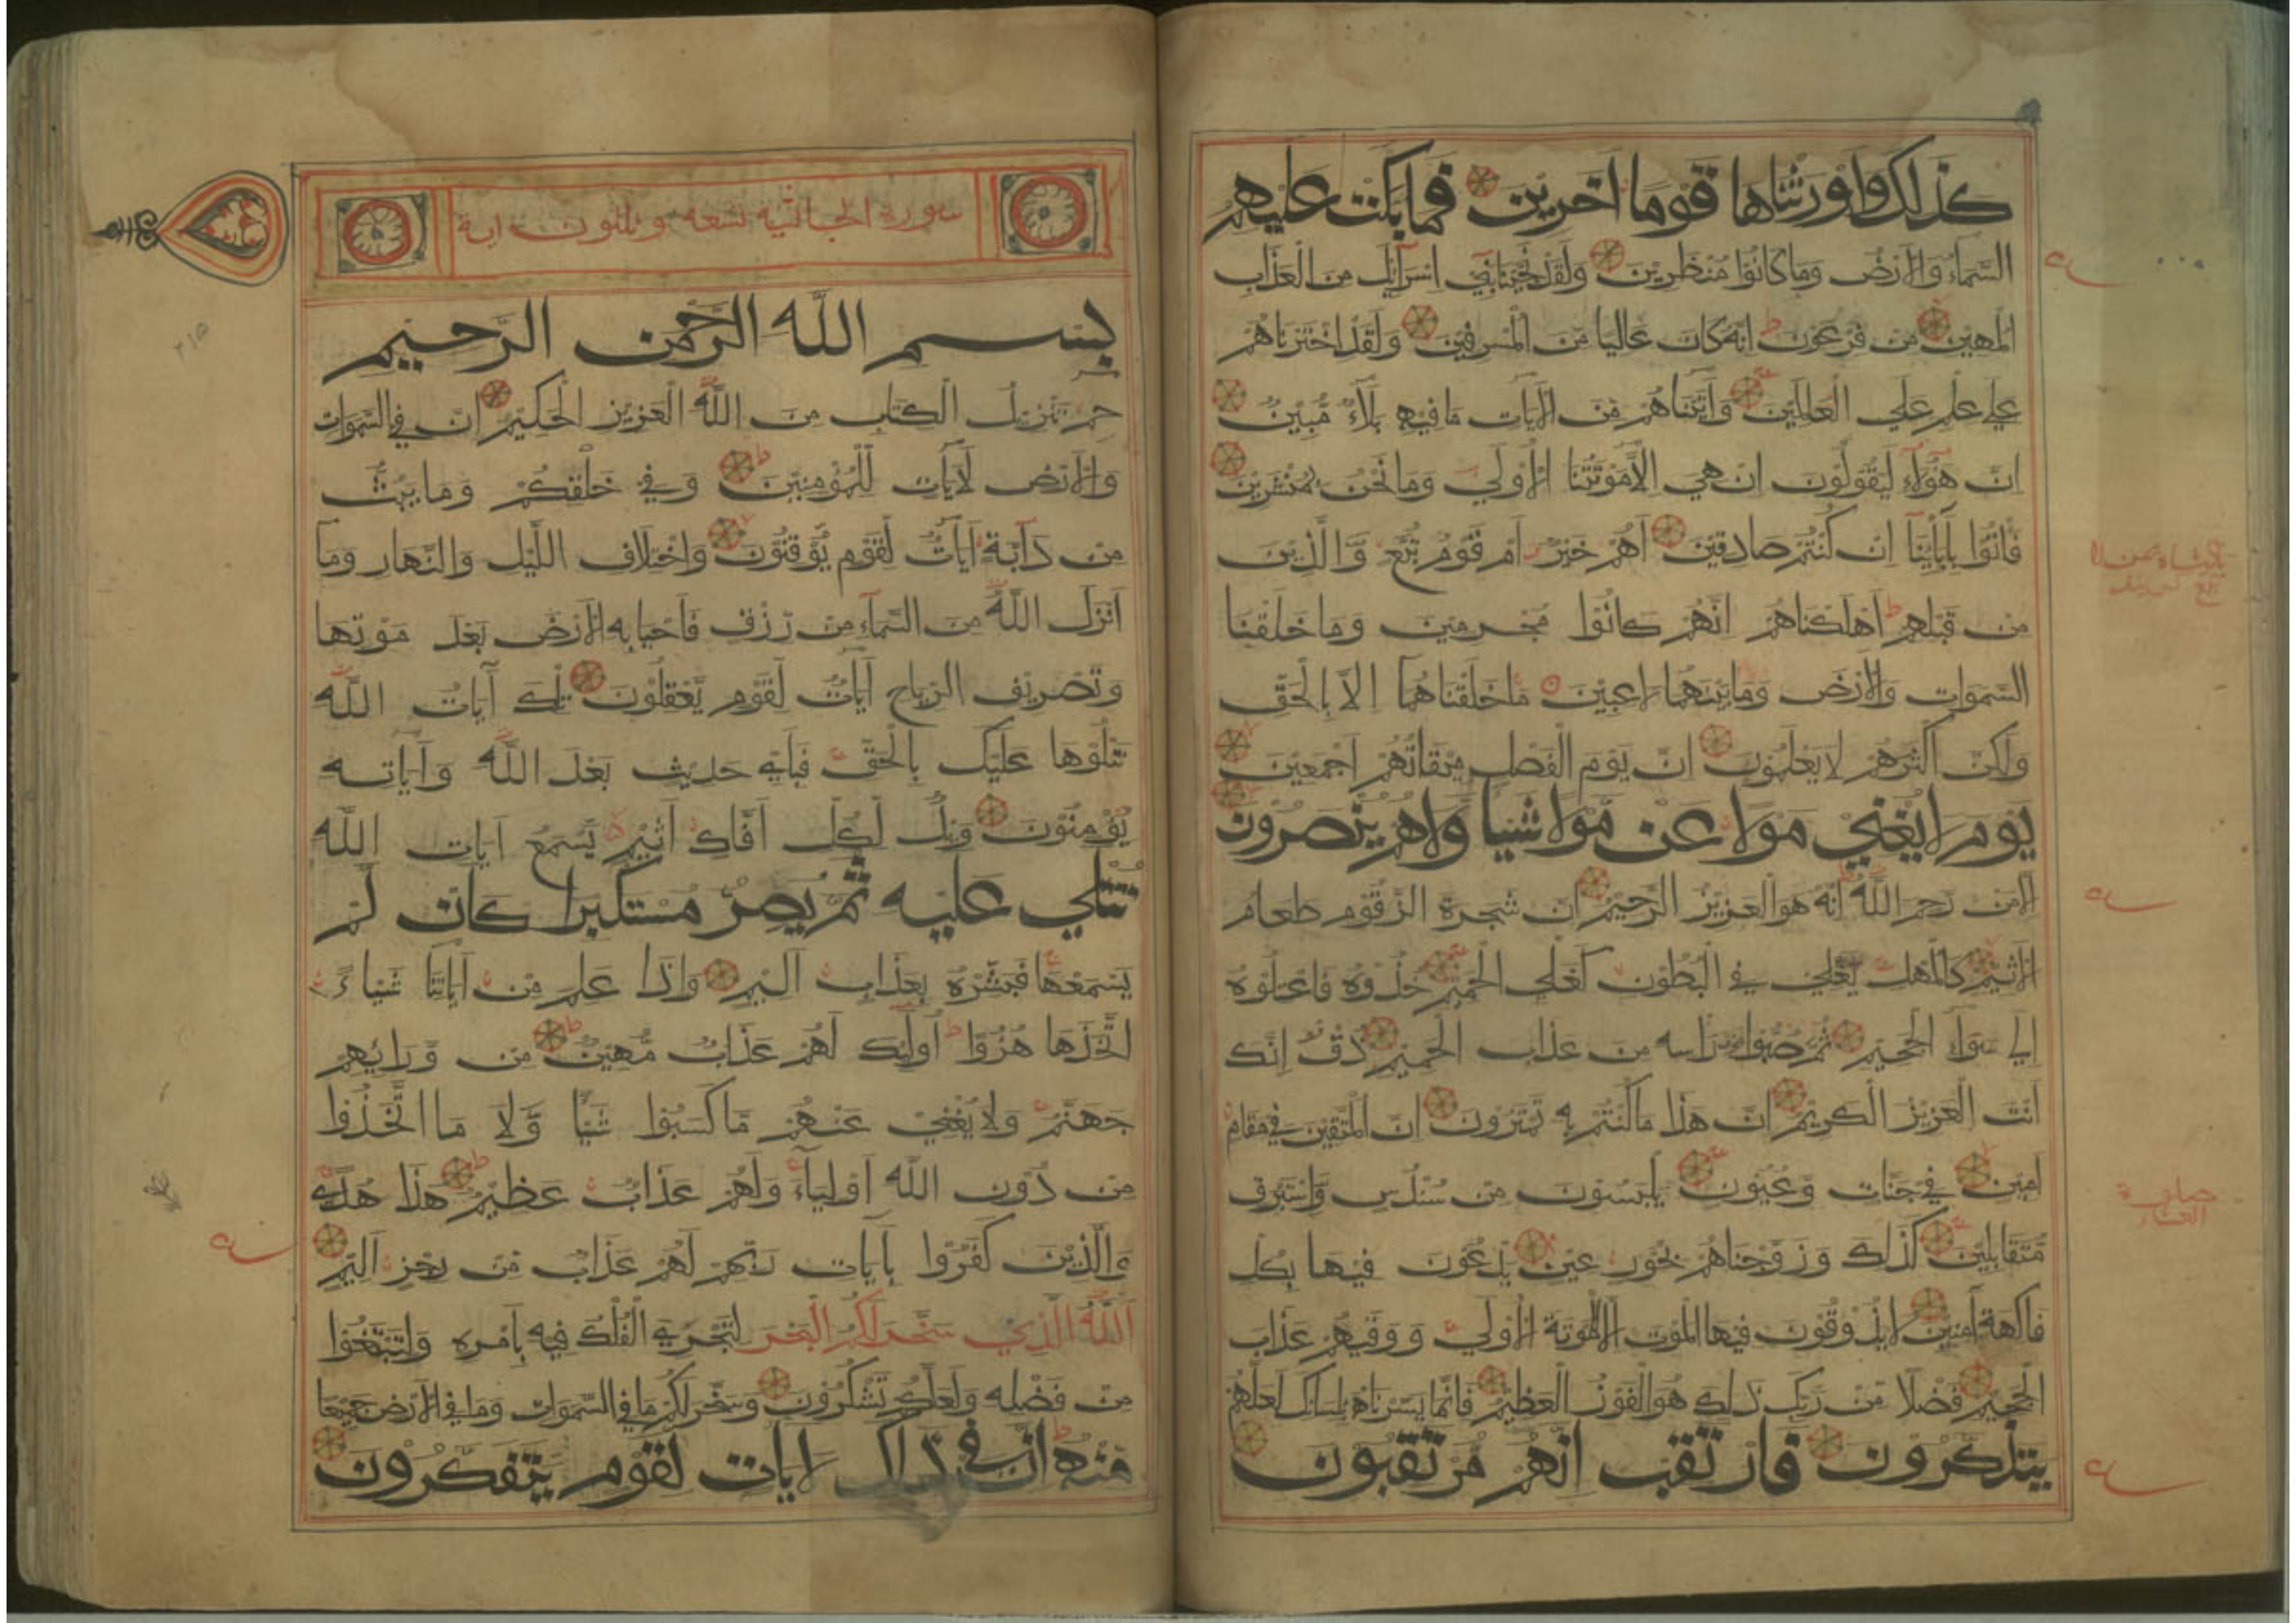 كذلك واورثناها قوما اخرين فما بكت عليهم
السماء والارض وما كانوا منظرين ولقد نجينا بني اسرائيل من العذاب
المهين من فرعون انه كان عاليا من المسرفين ولقد اخترناهم
على علم علي العالمين واتيناهم من الايات ما فيه بلاء مبين
ان هؤلاء ليقولون ان هي الا موتتنا الاولي وما نحن بمنشرين
فاتوا بآبائنا ان كنتم صادقين اهم خير ام قوم تبع والذين
من قبلهم اهلكناهم انهم كانوا مجرمين وما خلقنا
السموات والارض وما بينهما لاعبين ما خلقناهما الا بالحق
ولكن اكثرهم لا يعلمون ان يوم الفصل ميقاتهم اجمعين
يوم لا يغني مولا عن مولا شيا ولا هم ينصرون
الا من رحم الله انه هو العزيز الرحيم ان شجرة الزقوم طعام
الاثيم كالمهل يغلي في البطون كغلي الحميم خذوه فاعتلوه
الي سواء الجحيم ثم صبوا فوق راسه من عذاب الحميم ذق انك
انت العزيز الكريم ان هذا ما كنتم به تمترون ان المتقين في مقام
امين في جنات وعيون يلبسون من سندس واستبرق
متقابلين كذلك وزوجناهم بحور عين يدعون فيها بكل
فاكهة آمنين لا يذوقون فيها الموت الا الموتة الاولي ووقيهم عذاب
الجحيم فضلا من ربك ذلك هو الفوز العظيم فانما يسرناه بلسانك لعلهم
يتذكرون فارتقب انهم مرتقبون
سورة الجاثيه تسعه وثلثون اية
بسم الله الرحمن الرحيم
حم تنزيل الكتاب من الله العزيز الحكيم ان في السموات
والارض لآيات للمؤمنين وفي خلقكم وما يبث
من دآبة آيات لقوم يوقنون واختلاف الليل والنهار وما
انزل الله من السمآء من رزق فاحيا به الارض بعد موتها
وتصريف الرياح آيات لقوم يعقلون تلك آيات الله
نتلوها عليك بالحق فباي حديث بعد الله وآياته
يؤمنون ويل لكل افاك اثيم يسمع آيات الله
تتلي عليه ثم يصر مستكبرا كان لم
يسمعها فبشره بعذاب اليم واذا علم من آياتنا شياء
اتخذها هزوا اولئك لهم عذاب مهين من ورائهم
جهنم ولا يغني عنهم ما كسبوا شيا ولا ما اتخذوا
من دون الله اوليآء ولهم عذاب عظيم هذا هدي
والذين كفروا بآيات ربهم لهم عذاب من رجز اليم
الله الذي سخر لكم البحر لتجري الفلك فيه بامره ولتبتغوا
من فضله ولعلكم تشكرون وسخر لكم ما في السموات وما في الارض جميعا
منه ان في ذلك لايات لقوم يتفكرون